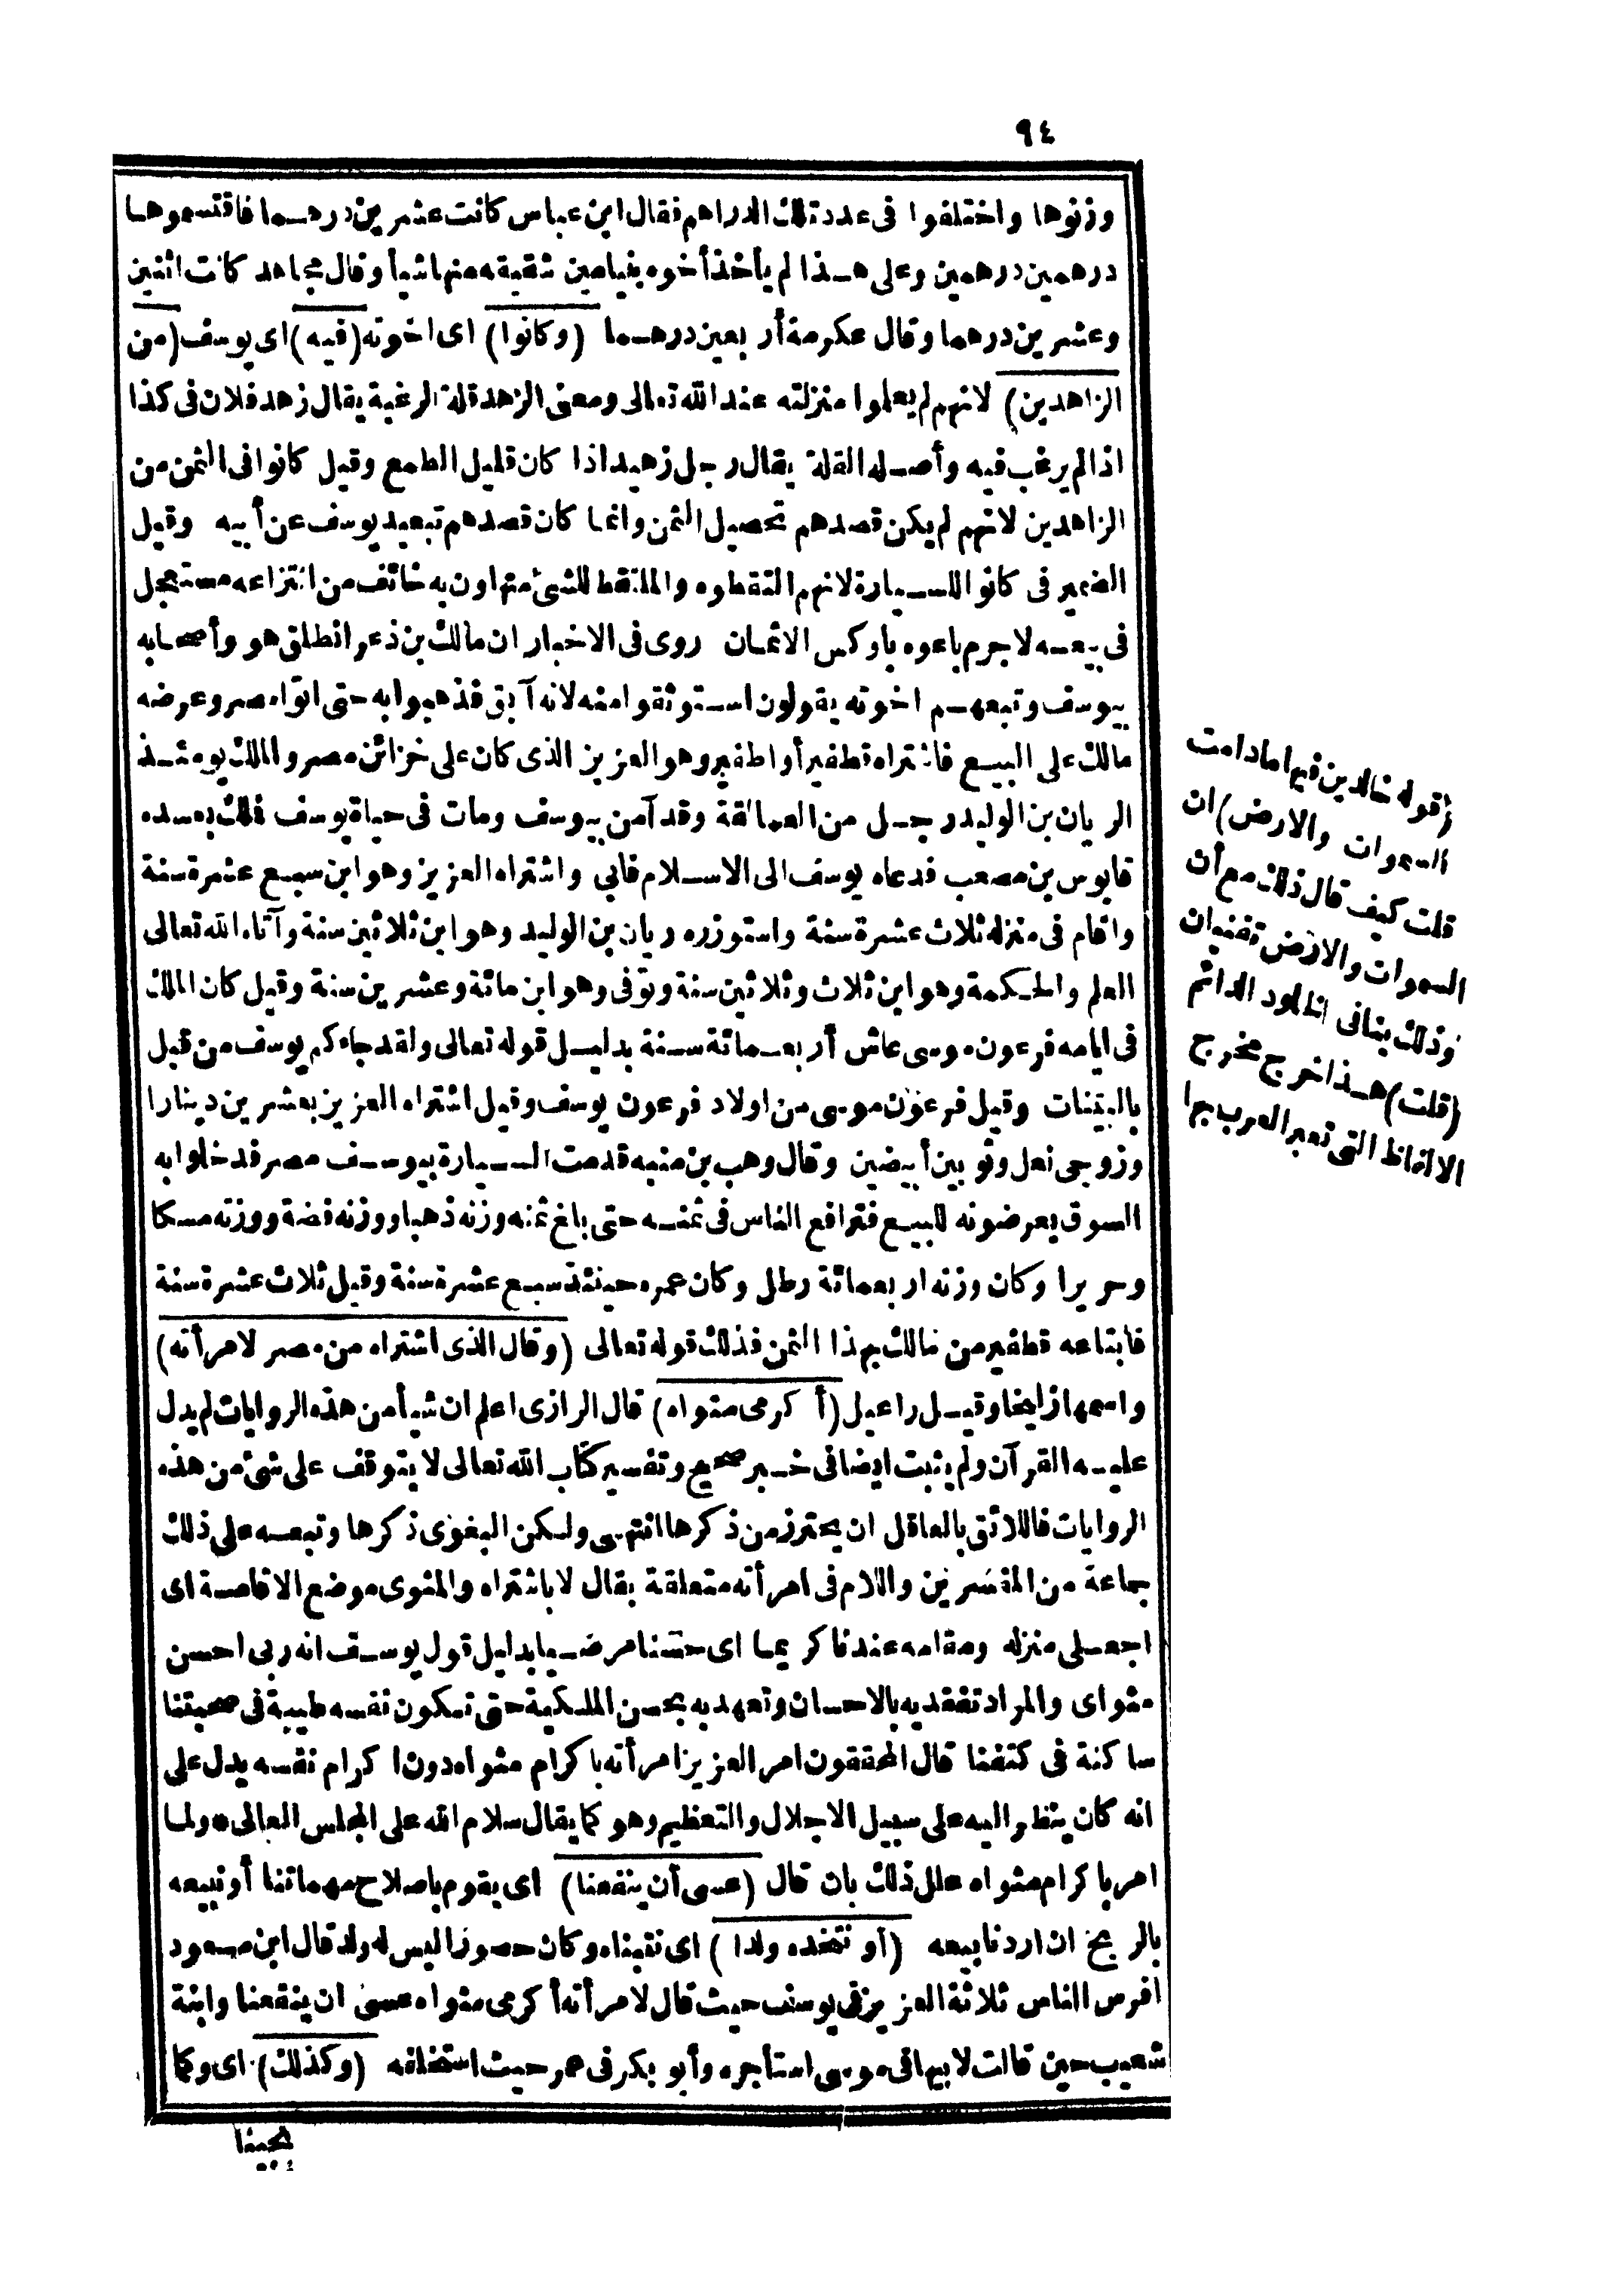 ٩٤
وزنوها واختلفوا فى عدد تلك الدراهم فقال ابن عباس كانت عشرين درهما فاقتسموها
درهمين درهمين وعلى هذا لم يأخذ أخوه بنيامين شقيقه منها شيأ وقال مجاهد كانت اثنين
وعشرين درهما وقال عكرمة أربعين درهما (وكانوا) اى اخوته (فيه) اى يوسف (من
الزاهدين) لانهم لم يعلموا منزلته عند الله تعالى ومعنى الزهد قلة الرغبة يقال زهد فلان فى كذا
اذا لم يرغب فيه وأصله القلة يقال رجل زهيد اذا كان قليل الطمع وقيل كانوا فى الثمن من
الزاهدين لانهم لم يكن قصدهم تحصيل الثمن وانما كان قصدهم تبعيد يوسف عن أبيه وقيل
الضمير فى كانوا للسيارة لانهم التقطوه والملتقط للشئ متهاون به خائف من انتزاعه مستعجل
فى بيعه لاجرم باعوه باوكس الاثمان روى فى الاخبار ان مالك بن ذعر انطلق هو وأصحابه
بيوسف وتبعهم اخوته يقولون استوثقوا منه لانه آبق فذهبوا به حتى اتوا مصر وعرضه
مالك على البيع فاشتراه قطفير أو اطفير وهو العزيز الذى كان على خزائن مصر والملك يومئذ
الريان بن الوليد رجل من العمالقة وقد آمن بيوسف ومات فى حياة يوسف فملك بعده
قابوس بن مصعب فدعاه يوسف الى الاسلام فابى واشتراه العزيز وهو ابن سبع عشرة سنة
واقام فى منزله ثلاث عشرة سنة واستوزره ريان بن الوليد وهو ابن ثلاثين سنة وآتاه الله تعالى
العلم والحكمة وهو ابن ثلاث وثلاثين سنة وتوفى وهو ابن مائة وعشرين سنة وقيل كان الملك
فى ايامه فرعون موسى عاش أربعمائة سنة بدليل قوله تعالى ولقد جاءكم يوسف من قبل
بالبينات وقيل فرعون موسى من اولاد فرعون يوسف وقيل اشتراه العزيز بعشرين دينارا
وزوجى نعل وثوبين أبيضين وقال وهب بن منبه قدمت السيارة بيوسف مصر فدخلوا به
السوق يعرضونه للبيع فترافع الناس فى ثمنه حتى بلغ ثمنه وزنه ذهبا ووزنه فضة ووزنه مسكا
وحريرا وكان وزنه اربعمائة رطل وكان عمره حينئذ سبع عشرة سنة وقيل ثلاث عشرة سنة
فابتاعه قطفير من مالك بهذا الثمن فذلك قوله تعالى (وقال الذى اشتراه من مصر لامرأته)
واسمها زليخا وقيل راعيل (أكرمى مثواه) قال الرازى اعلم ان شيأ من هذه الروايات لم يدل
عليه القرآن ولم يثبت ايضا فى خبر صحيح وتفسير كتاب الله تعالى لا يتوقف على شئ من هذه
الروايات فاللائق بالعاقل ان يحترز من ذكرها انتهى ولكن البغوى ذكرها وتبعه على ذلك
جماعة من المفسرين واللام فى امرأته متعلقة بقال لا باشتراه والمثوى موضع الاقامة اى
اجعلى منزله ومقامه عندنا كريما اى حسنا مرضيا بدليل قول يوسف انه ربى احسن
مثواى والمراد تفقديه بالاحسان وتعهديه بحسن الملكية حتى تكون نفسه طيبة فى صحبتنا
ساكنة فى كنفنا قال المحققون امر العزيز امرأته باكرام مثواه دون اكرام نفسه يدل على
انه كان ينظر اليه على سبيل الاجلال والتعظيم وهو كما يقال سلام الله على المجلس العالى * ولما
امر باكرام مثواه علل ذلك بان قال (عسى أن ينفعنا) اى يقوم باصلاح مهماتنا أو نبيعه
بالربح ان اردنا بيعه (أو نتخذه ولدا) اى نتبناه وكان حصورا ليس له ولد قال ابن مسعود
افرس الناس ثلاثة العزيز فى يوسف حيث قال لامرأته أكرمى مثواه عسى ان ينفعنا وابنة
شعيب حين قالت لابيها فى موسى استأجره وأبو بكر فى عمر حيث استخلفه (وكذلك) اى وكما
نجينا
(قوله خالدين فيها مادامت
السموات والارض) ان
قلت كيف قال ذلك مع أن
السموات والارض تفنيان
وذلك ينافى الخلود الدائم
(قلت) هذا خرج مخرج
الالفاظ التى تعبر العرب بها